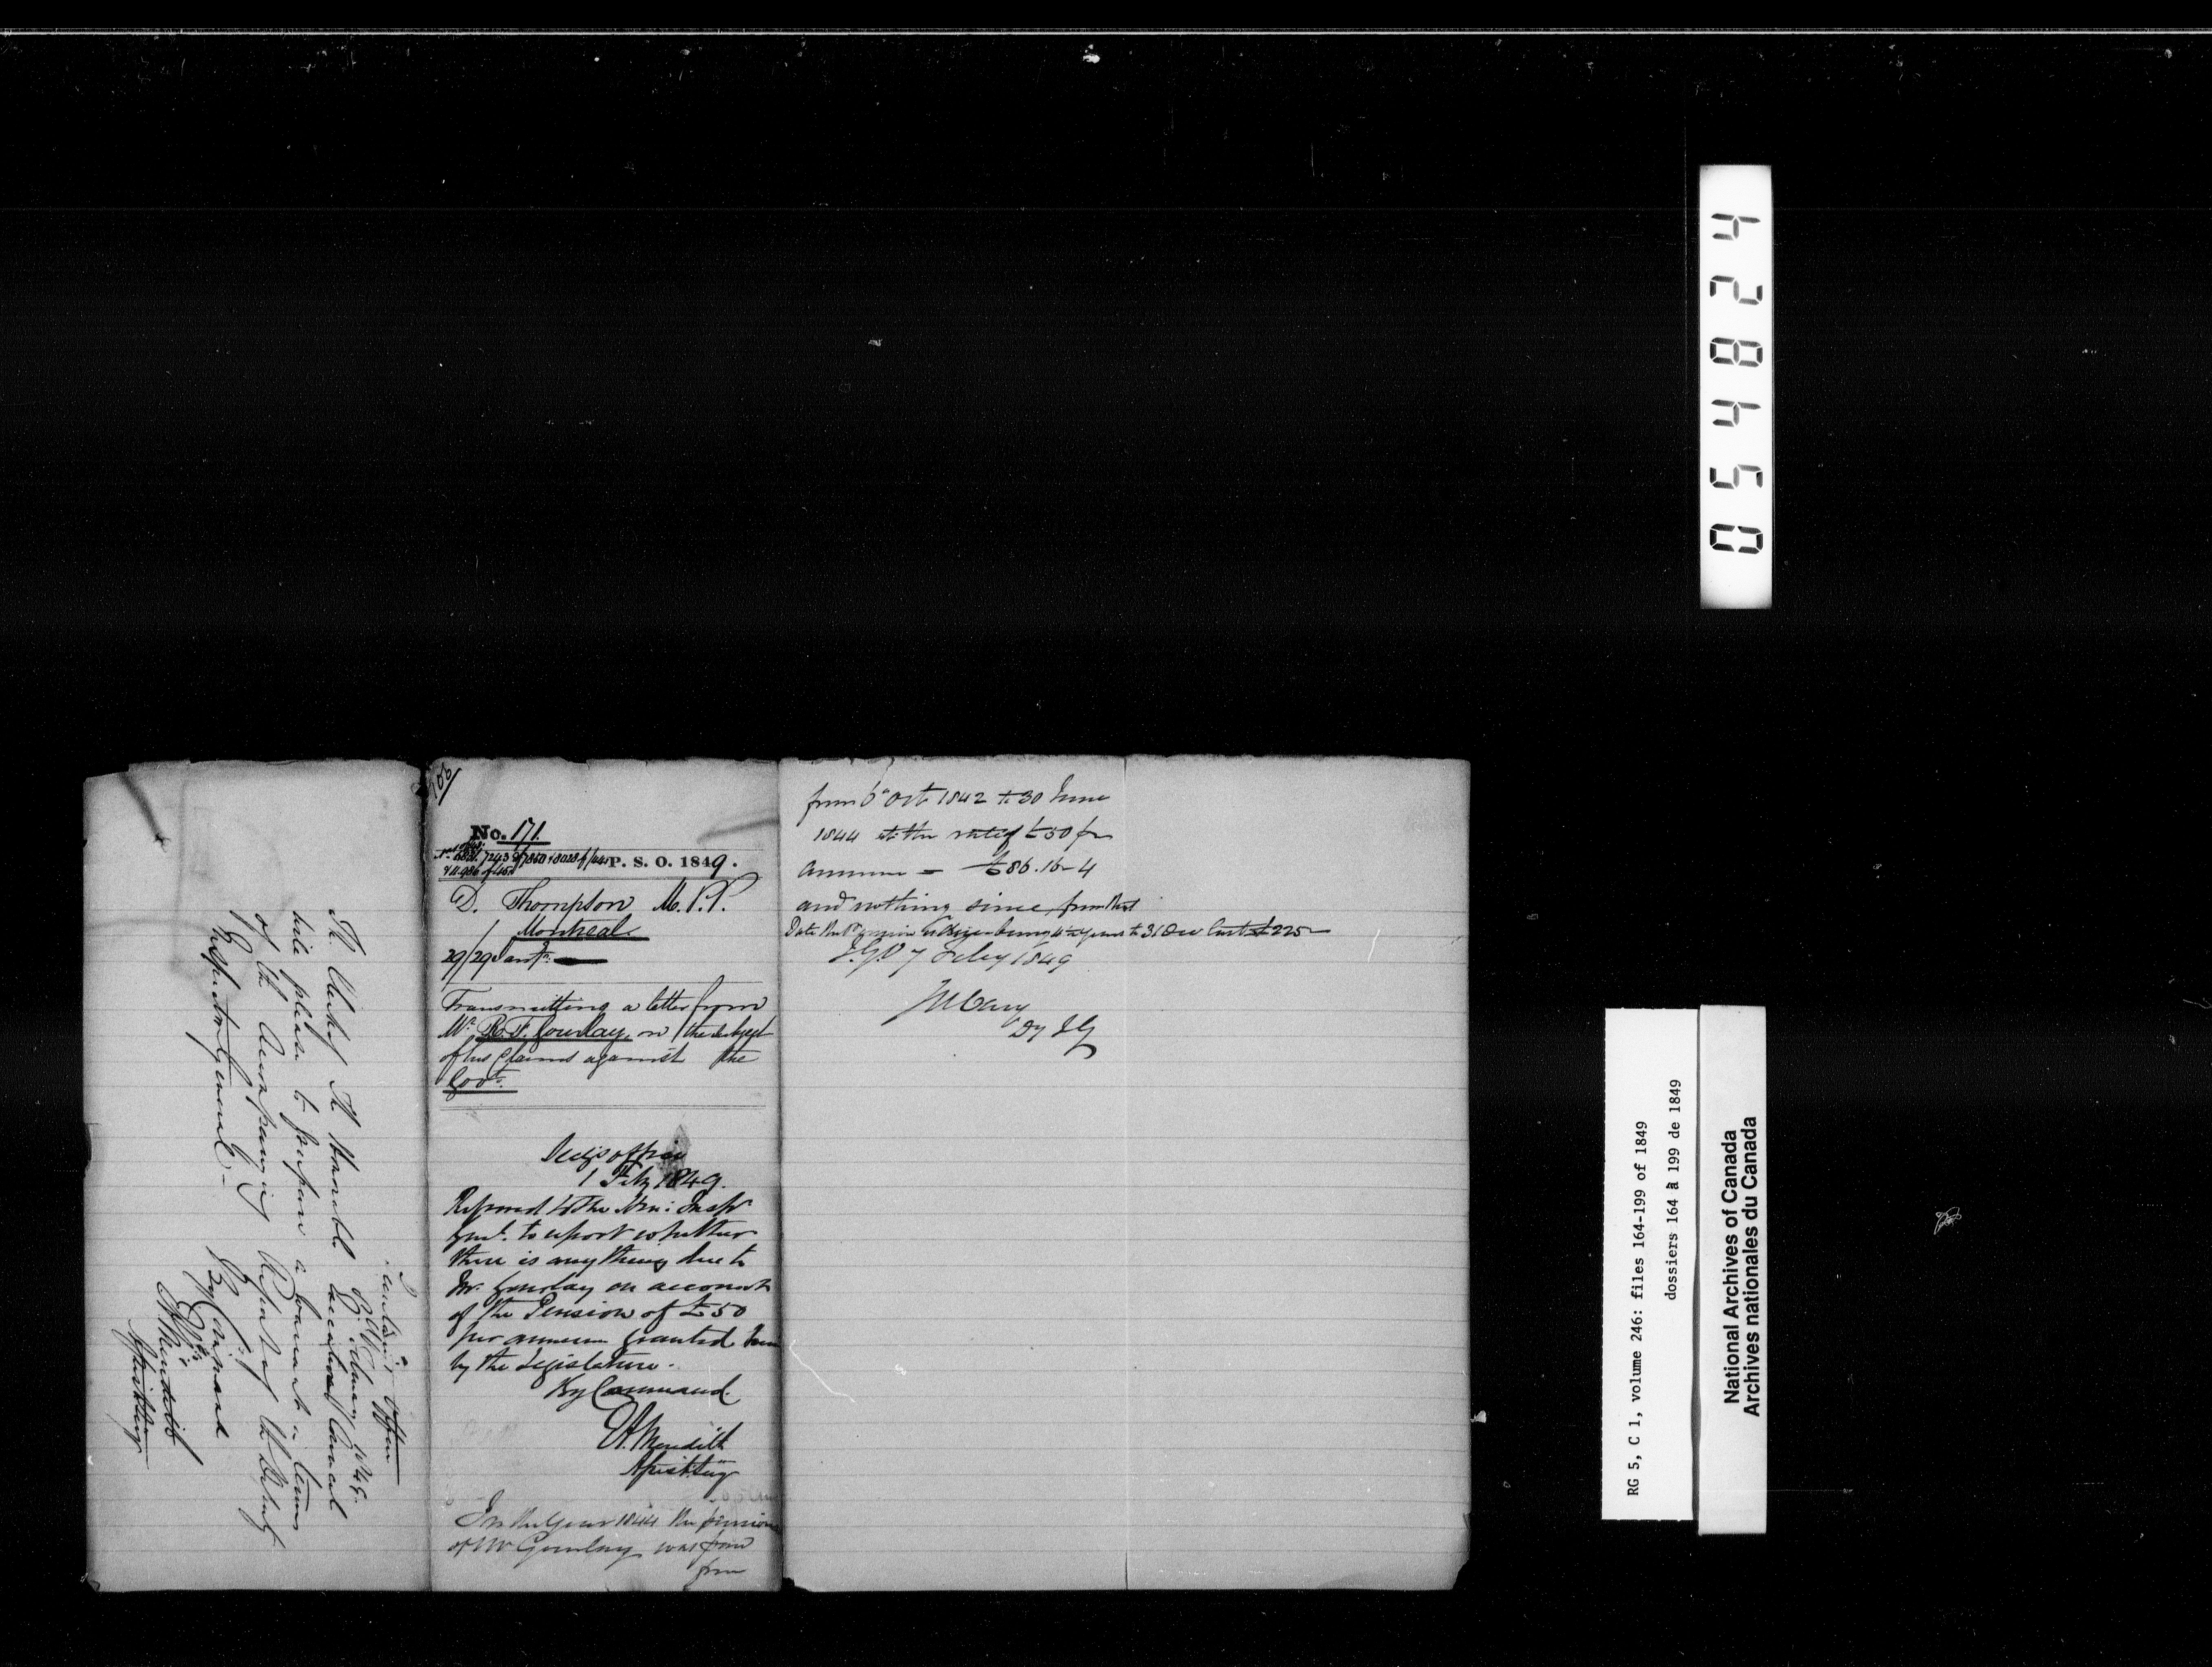 106/
No. 171.
P. S. O. 1849.
D. Thompson M.P.P.
Montreal
29/29 Jany.
Transmitting a letter from
Mr. R. F. Gourlay, on the subject
of his claims against the
Govt.
Secy's office
1 Feby 1849.
Referred to the Hon: Inspr
Genl. to report whether
there is any thing due to
Mr. Gourlay on account
of the Pension of £50
per annum granted him
by the Legislature.
By Command.
E A. Meredith
Asst Secy
In the year 1844 the pension
of Mr Gourlay was paid
from
from 6 Oct 1842 to 30 June
1844 at the rate of £50 per
annum = £86.16-4
and nothing since, from that
Date the Pension 4½ years to 31 Dec last £225
I.G.O 7 Feby 1849
J Cary
Dy I G
Secretary's Office
February 1849.
The Clerk of The Honorable Executive Council
will please to prepare a Warrant in terms
of the accompanying Report of the Deputy
Inspector General.
By Command
E A Meredith
Asst Secy
054824
RG 5, C 1, volume 246: files 164-199 of 1849
dossiers 164 à 199 de 1849
National Archives of Canada
Archives nationales du Canada